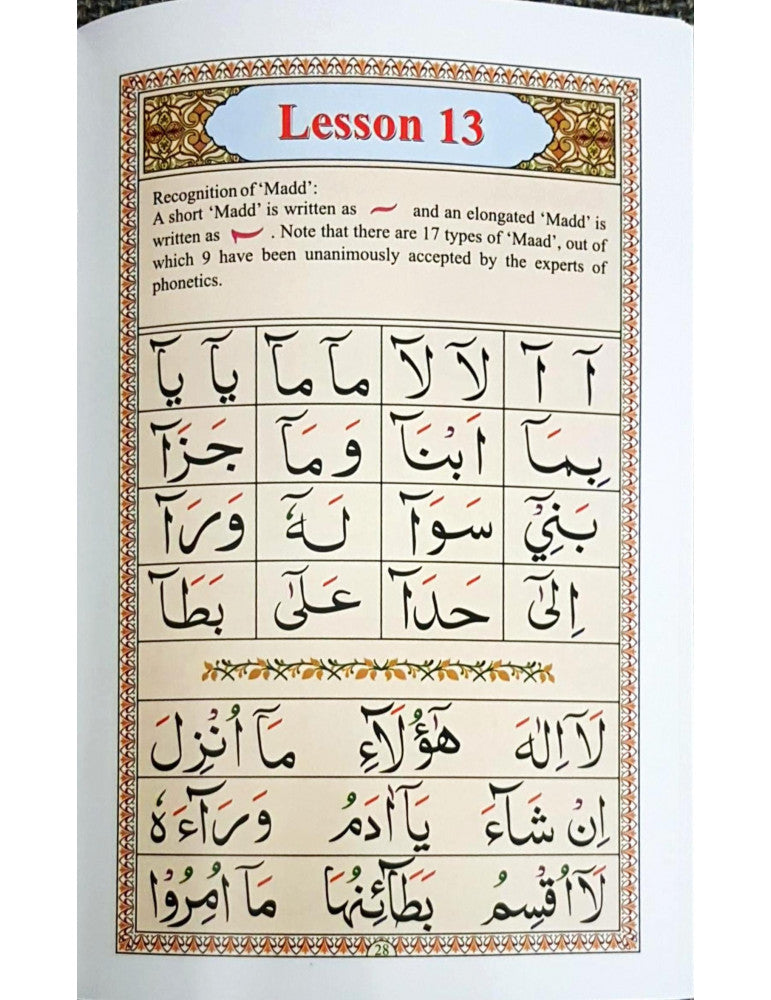 Lesson 13
Recognition of ‘Madd’:
A short ‘Madd’ is written as ~ and an elongated ‘Madd’ is
written as ~ . Note that there are 17 types of ‘Maad’, out of
which 9 have been unanimously accepted by the experts of
phonetics.
آ آ لَآ لَآ مَآ مَآ يَآ يَآ
بِمَآ اَبْنَآ وَمَآ جَزَآ
بَنِيْٓ سَوَآ لَهٗٓ وَرَآ
اِلٰٓى حَدَآ عَلٰٓى بَطَآ
لَآ اِلٰهَ هٰٓؤُلَآءِ مَآ اُنْزِلَ
اِنْ شَآءَ يَآاٰدَمُ وَرَآءَهٗ
لَآ اُقْسِمُ بَطَآئِنُهَا مَآ اُمِرُوْٓا
28